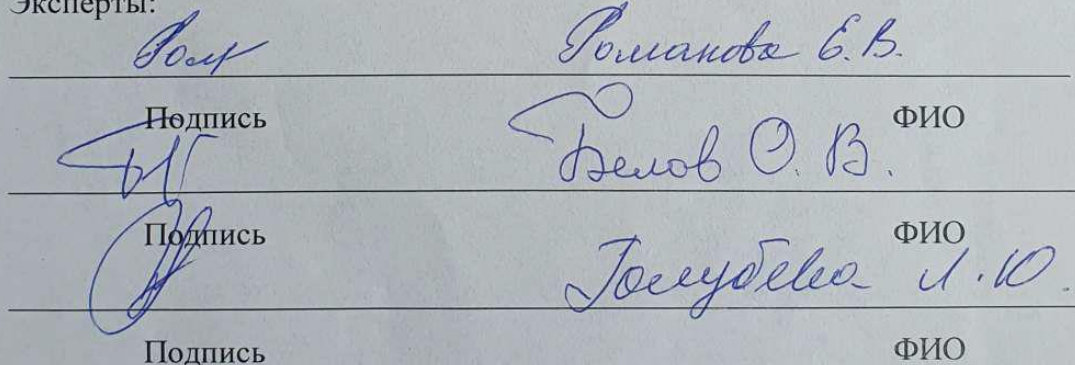 Эксперты:
Романова Е.В.
Подпись ФИО
Белов О.В.
Подпись ФИО
Голубева Л.Ю.
Подпись ФИО